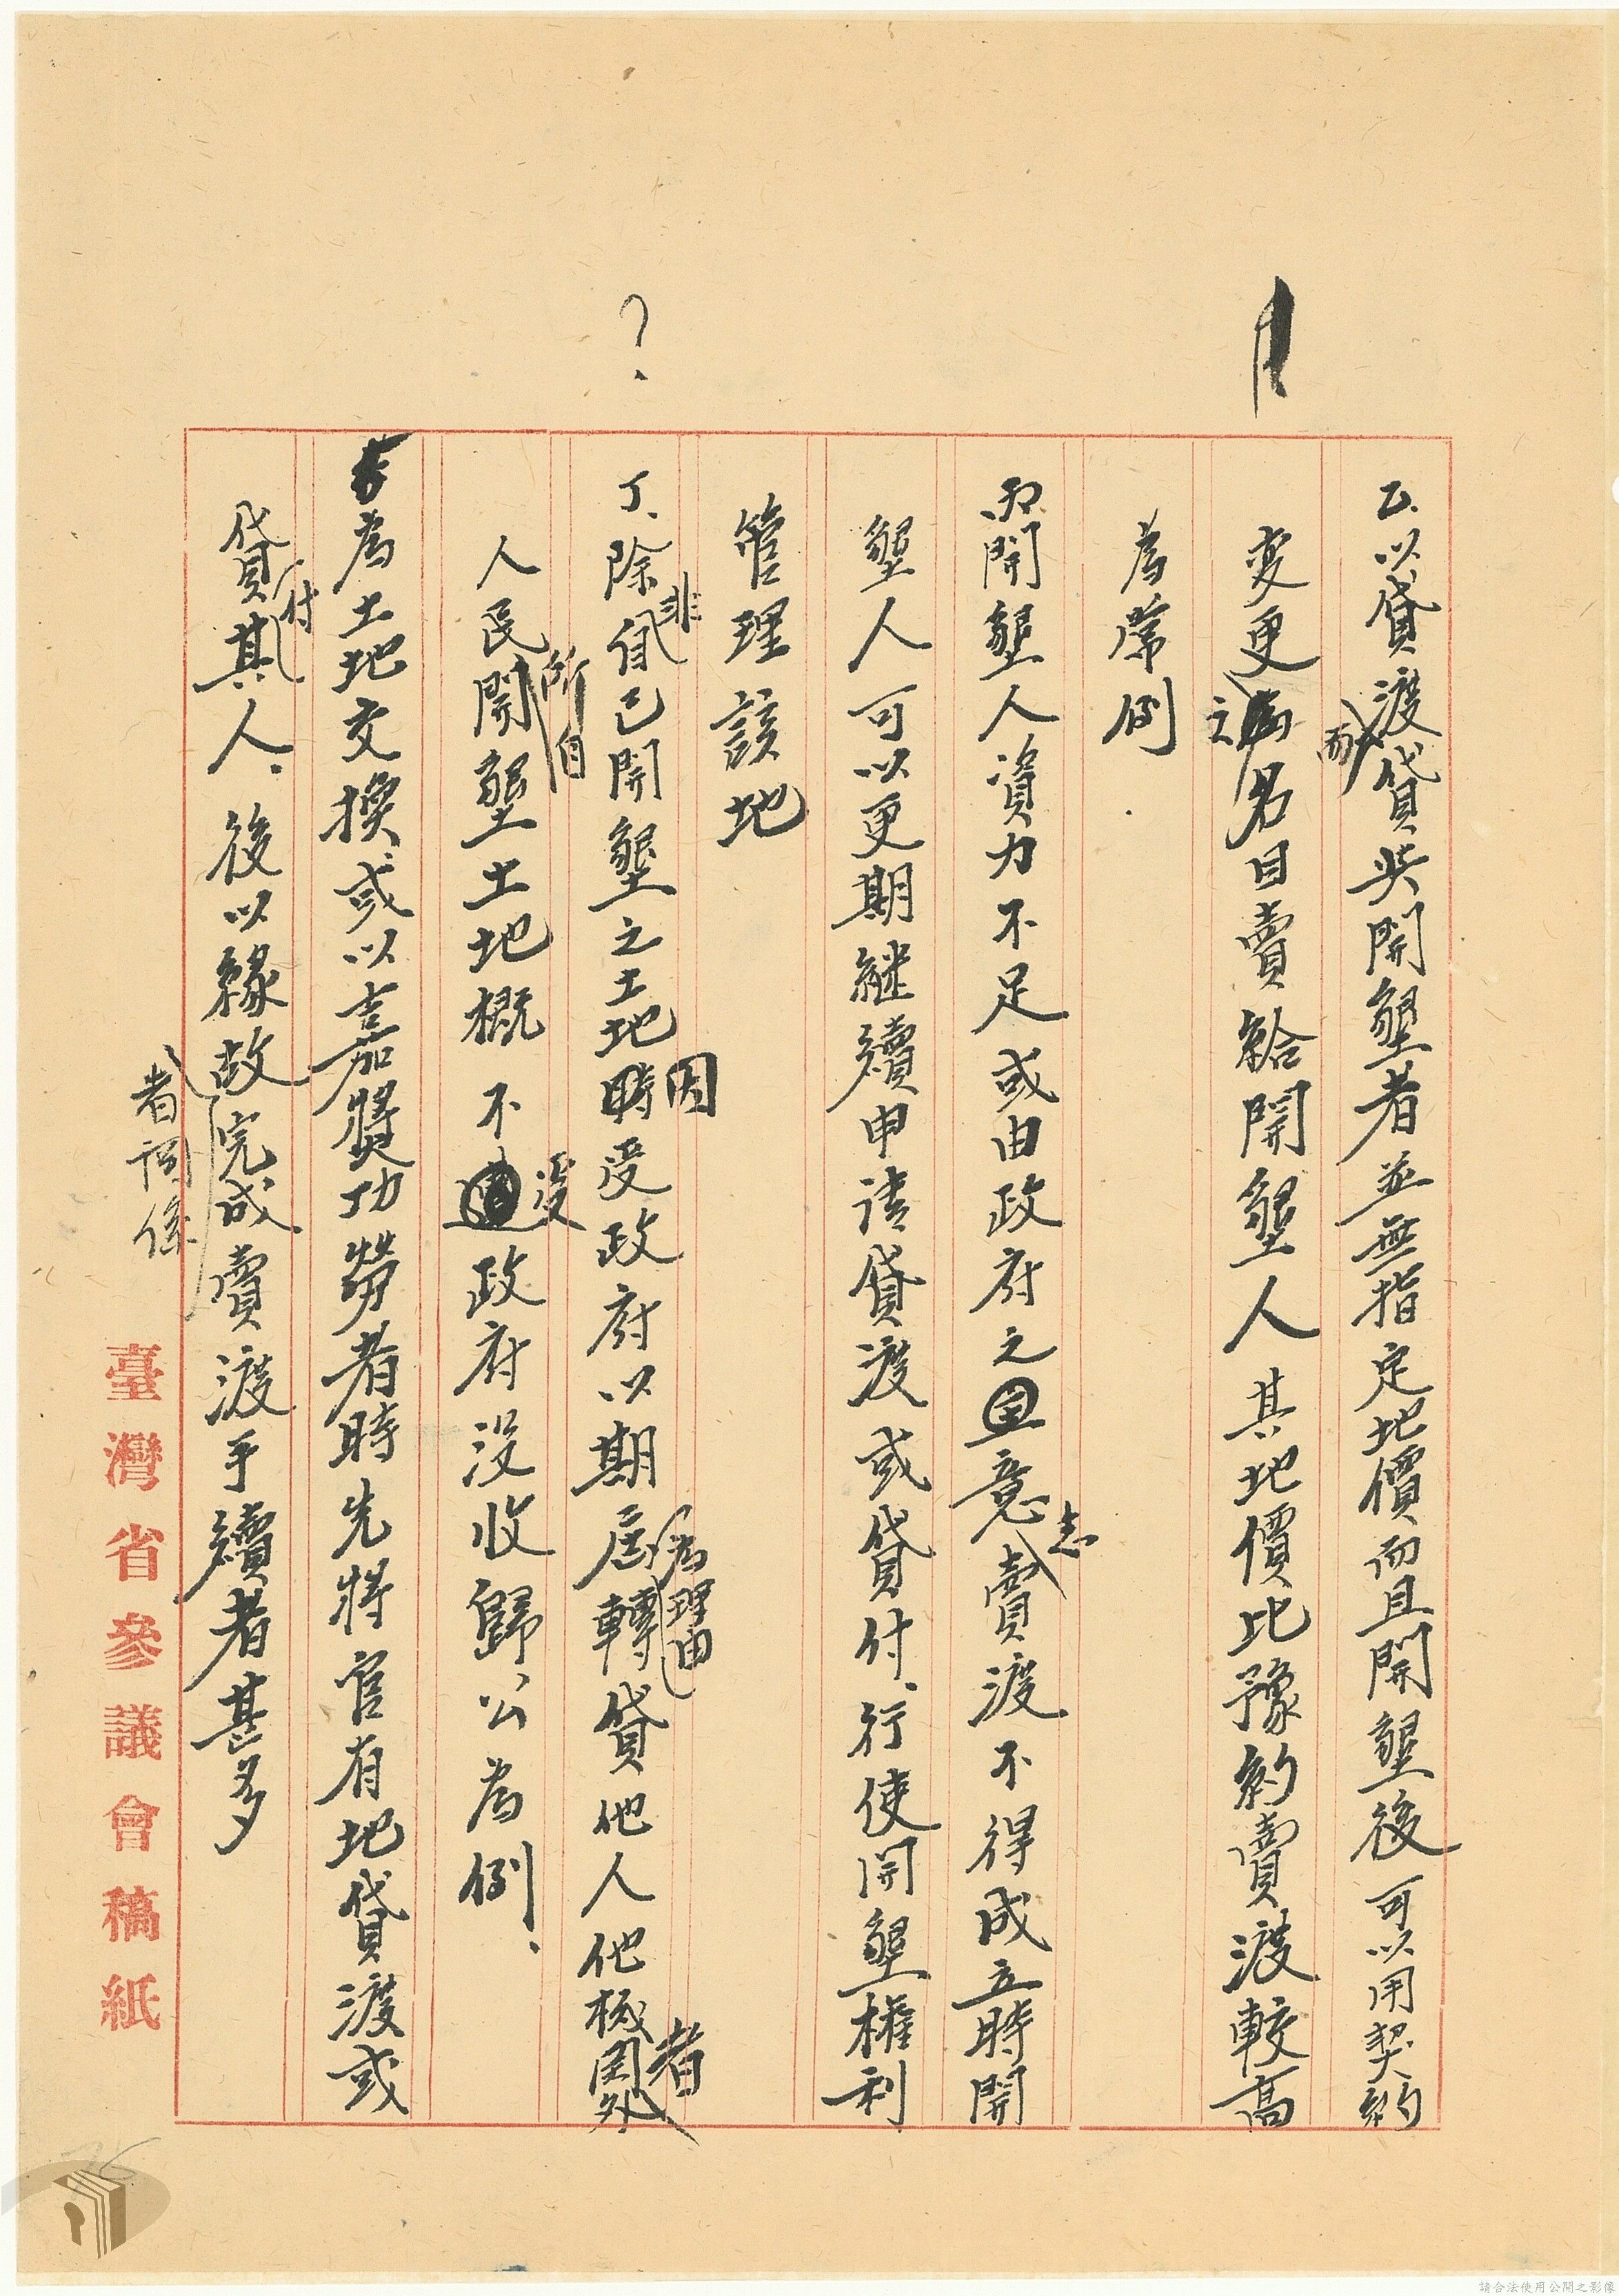 乙.以貸渡貸與開墾者並無指定地價而且開墾後可以用契約
而
變更為名目賣給開墾人其地價比豫約賣渡較高
之
為常例.
丙.開墾人資力不足或由政府之意賣渡不得成立時開
志
墾人可以更期繼續申請貸渡或貸付、行使開墾權利
管理該地
?
丁、除自己開墾之土地時受政府以期屆轉貸他人他機関外
非
因
為理由
者
人民開墾土地概不政府沒收歸公為例、
所自
受
為土地交換或以嘉獎功勞者時先將官有地貸渡或
貸其人、後以緣故完成賣渡手續者甚多
付
者
係
臺灣省參議會稿紙
76
請合法使用公開之影像